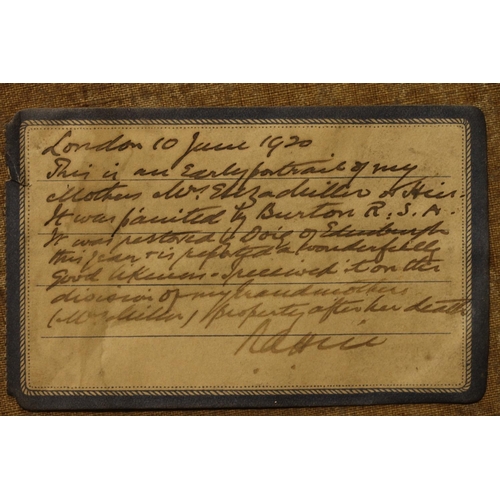 London 10 June 1920
This is an Early portrait of my
Mother Mrs Eliza Miller or Hill.
It was painted by Burton R.S.A.
It was restored by Doig of Edinburgh
this year & is reported a wonderfully
good likeness. I received it on the
division of my grandmothers
(Mrs Miller) property after her death
Hill